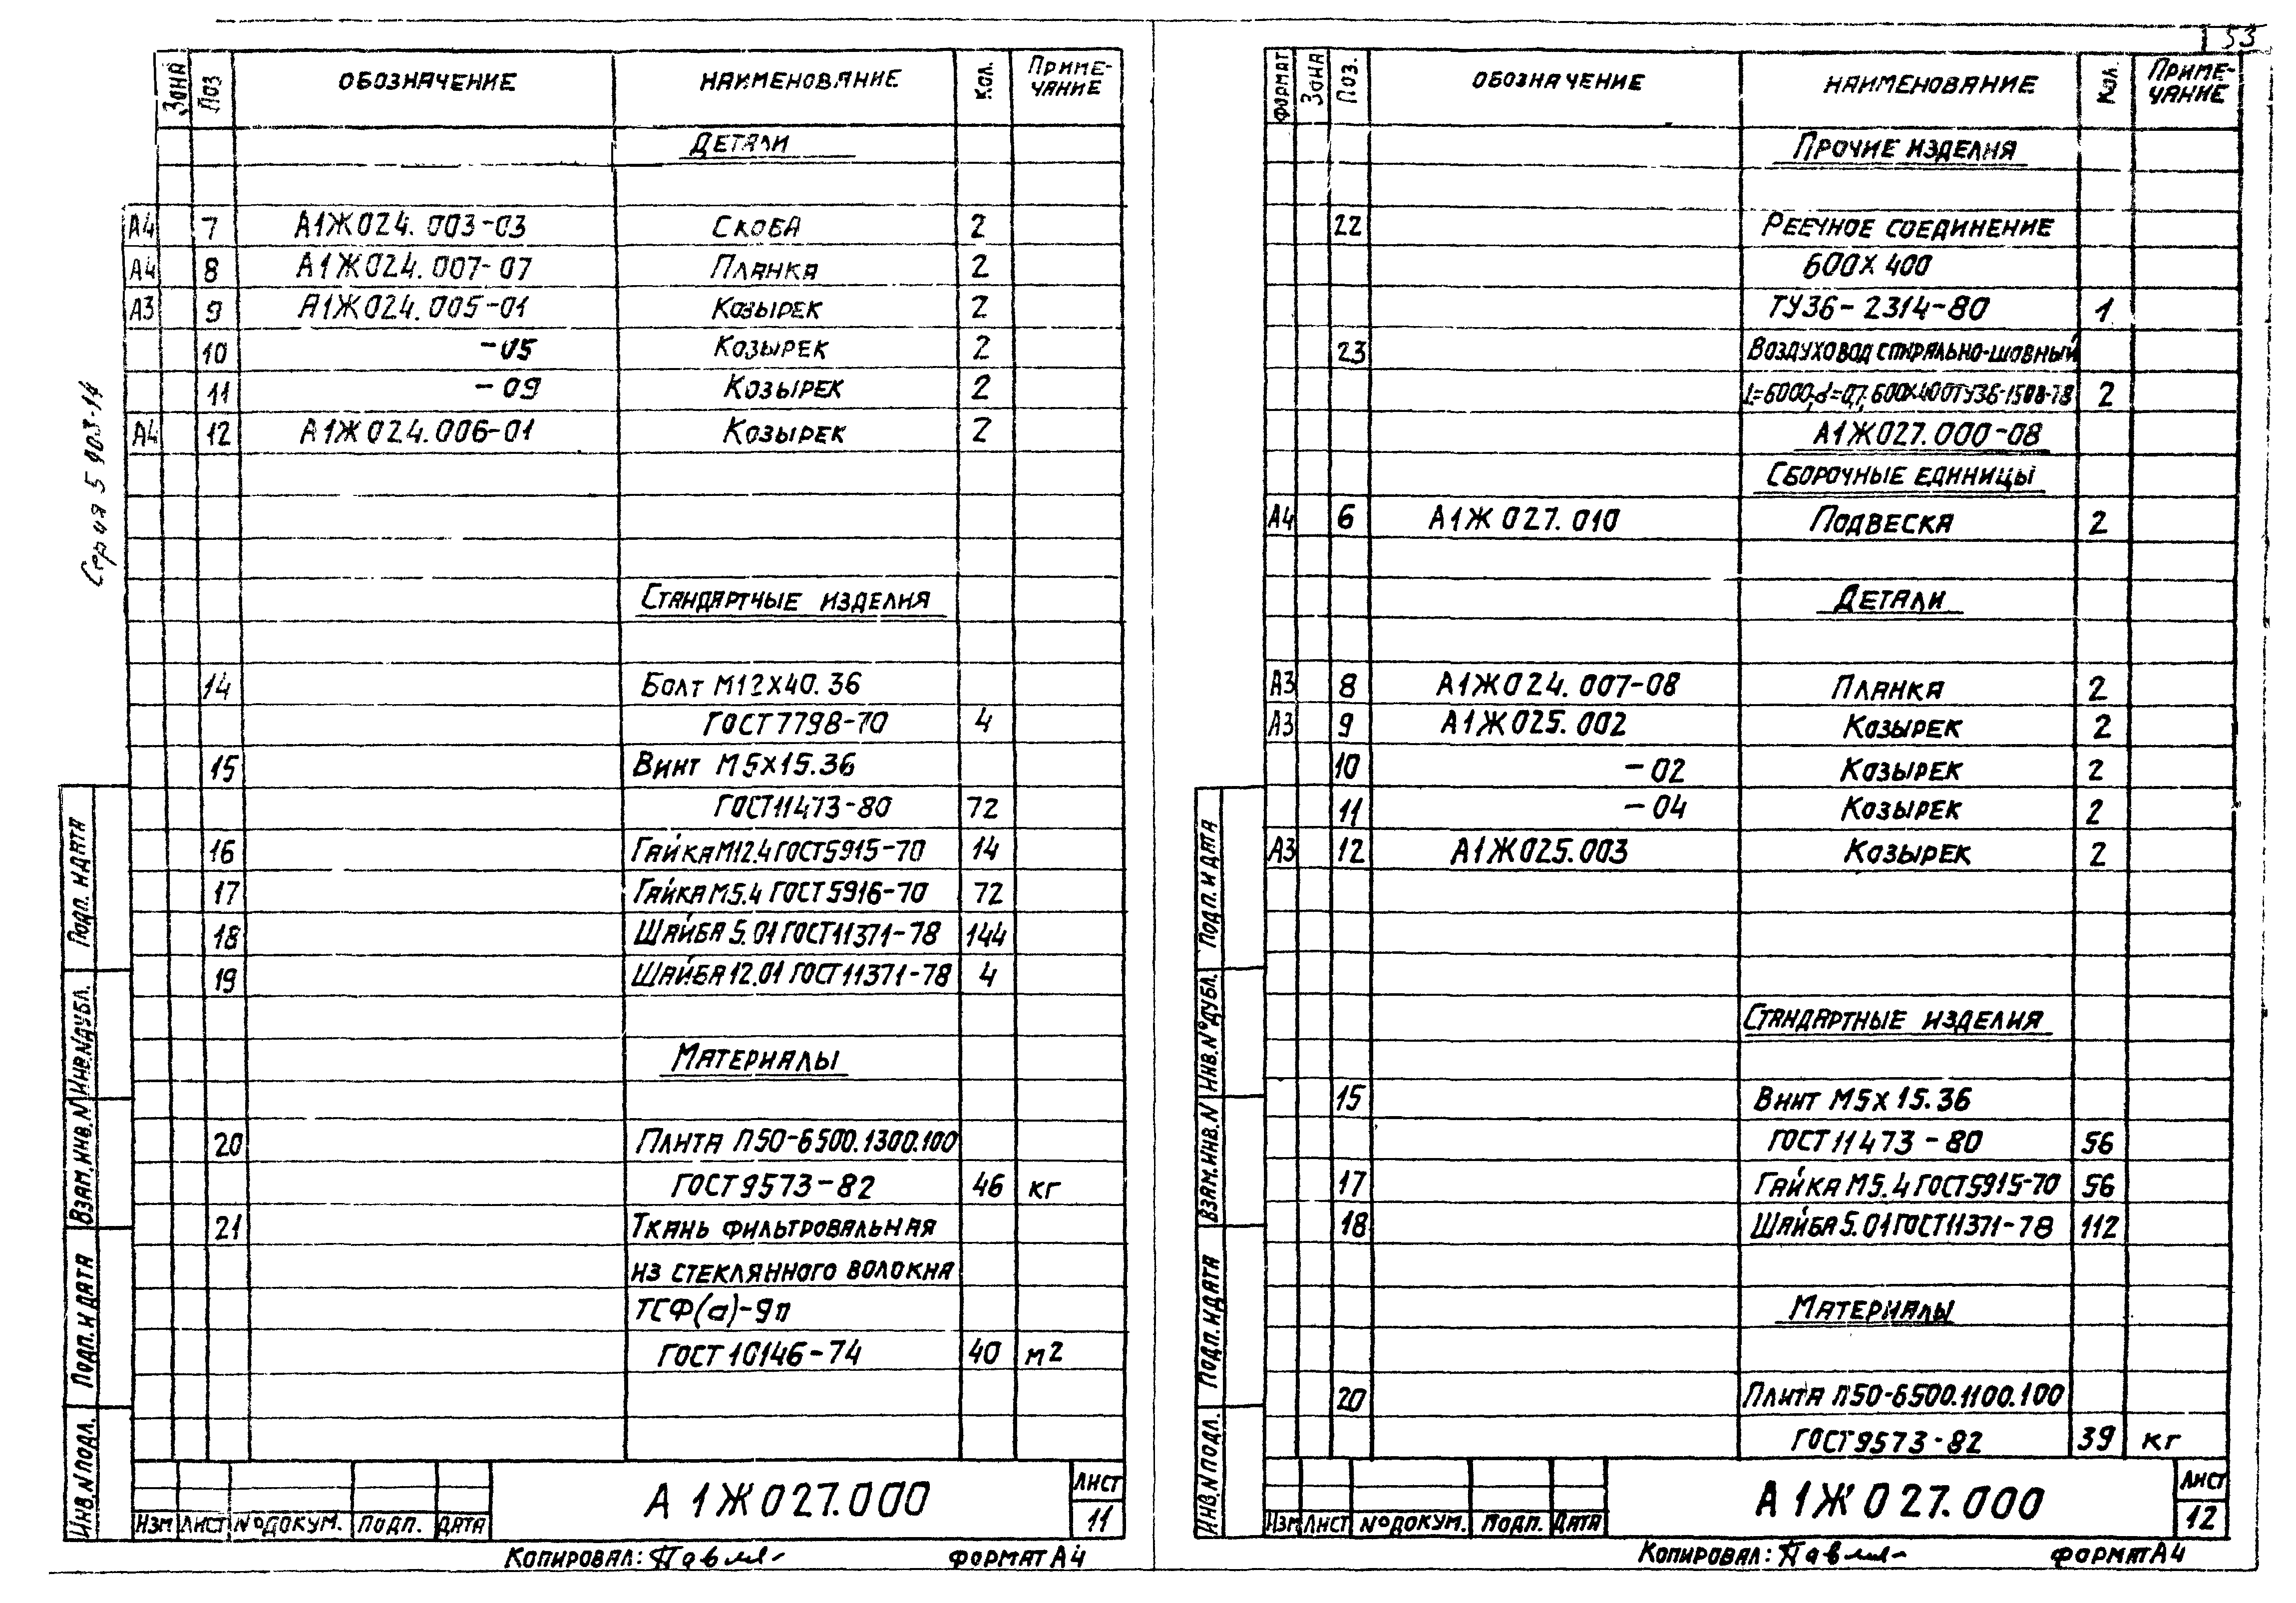 53
Серия 5 903-14
Зона Поз ОБОЗНАЧЕНИЕ НАИМЕНОВАНИЕ Кол. ПРИМЕ-
ЧАНИЕ
ДЕТАЛИ
А4 7 А1Ж024. 003-03 СКОБА 2
А4 8 А1Ж024. 007-07 ПЛАНКА 2
А3 9 А1Ж024. 005-01 КОЗЫРЕК 2
10 -05 КОЗЫРЕК 2
11 -09 КОЗЫРЕК 2
А4 12 А1Ж024.006-01 КОЗЫРЕК 2
СТАНДАРТНЫЕ ИЗДЕЛИЯ
14 БОЛТ М12Х40.36
ГОСТ7798-70 4
15 ВИНТ М5Х15.36
ГОСТ11473-80 72
16 ГАЙКА М12.4 ГОСТ5915-70 14
17 ГАЙКА М5.4 ГОСТ5916-70 72
18 ШАЙБА 5.01 ГОСТ11371-78 144
19 ШАЙБА 12.01 ГОСТ11371-78 4
МАТЕРИАЛЫ
20 ПЛИТА П50-6500.1300.100
ГОСТ9573-82 46 кг
21 ТКАНЬ ФИЛЬТРОВАЛЬНАЯ
ИЗ СТЕКЛЯННОГО ВОЛОКНА
ТСФ(а)-9п
ГОСТ 10146-74 40 м2
ИНВ.N ПОДЛ. ПОДП. И ДАТА ВЗАМ.ИНВ.N ИНВ.N ДУБЛ. ПОДП. И ДАТА
ИЗМ ЛИСТ №ДОКУМ. ПОДП. ДАТА
А1Ж027.000
ЛИСТ
11
КОПИРОВАЛ: ФОРМАТ А4
ФОРМАТ ЗОНА ПОЗ. ОБОЗНАЧЕНИЕ НАИМЕНОВАНИЕ Кол. ПРИМЕ-
ЧАНИЕ
ПРОЧИЕ ИЗДЕЛИЯ
22 РЕЕЧНОЕ СОЕДИНЕНИЕ
600Х400
ТУ36-2314-80 1
23 ВОЗДУХОВОД СПИРАЛЬНО-ШОВНЫЙ
L=6000, d=0,7, 600Х400 ТУ36-1508-78 2
А1Ж027.000-08
СБОРОЧНЫЕ ЕДИНИЦЫ
А4 6 А1Ж027.010 ПОДВЕСКА 2
ДЕТАЛИ
А3 8 А1Ж024.007-08 ПЛАНКА 2
А3 9 А1Ж025.002 КОЗЫРЕК 2
10 -02 КОЗЫРЕК 2
11 -04 КОЗЫРЕК 2
А3 12 А1Ж025.003 КОЗЫРЕК 2
СТАНДАРТНЫЕ ИЗДЕЛИЯ
15 ВИНТ М5Х15.36
ГОСТ11473-80 56
17 ГАЙКА М5.4 ГОСТ5915-70 56
18 ШАЙБА 5.01 ГОСТ11371-78 112
МАТЕРИАЛЫ
20 ПЛИТА П50-6500.1100.100
ГОСТ9573-82 39 кг
ИНВ.N ПОДЛ. ПОДП. И ДАТА ВЗАМ.ИНВ.N ИНВ.N°ДУБЛ. ПОДП. И ДАТА
ИЗМ ЛИСТ №ДОКУМ. ПОДП. ДАТА
А1Ж027.000
ЛИСТ
12
КОПИРОВАЛ: ФОРМАТ А4